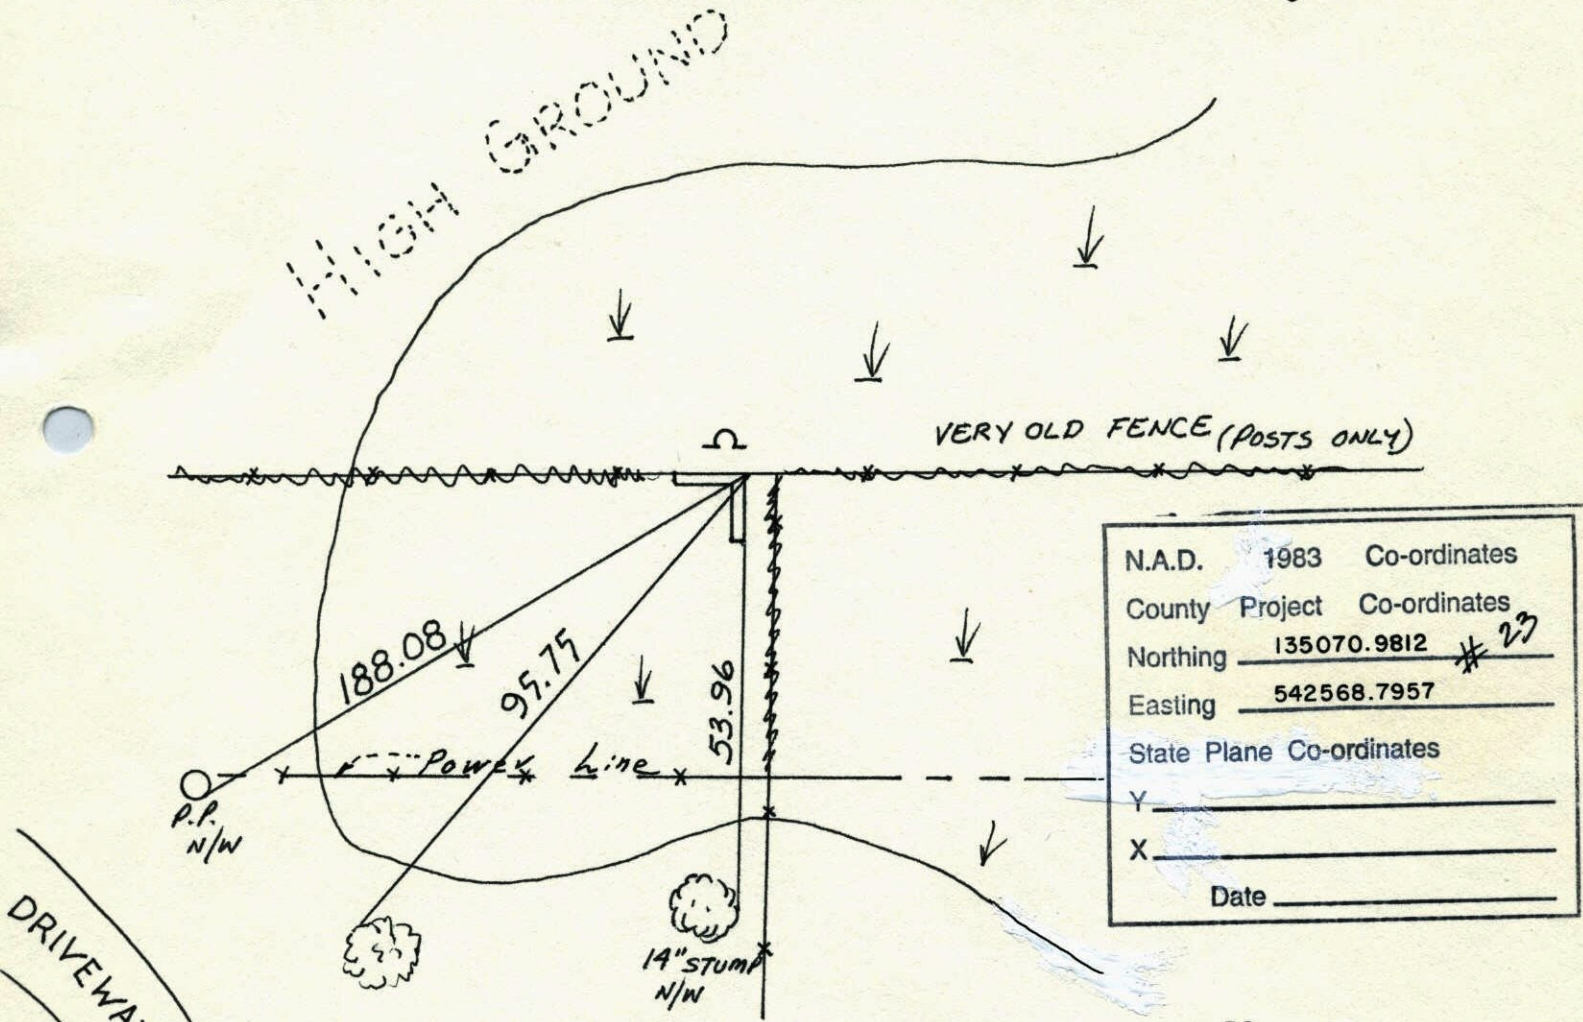 HIGH GROUND
Ω
VERY OLD FENCE (POSTS ONLY)
188.08
95.75
53.96
Power Line
P.P.
N/W
14" STUMP
N/W
DRIVEWA
N.A.D. 1983 Co-ordinates
County Project Co-ordinates
Northing 135070.9812 # 23
Easting 542568.7957
State Plane Co-ordinates
Y
X
Date